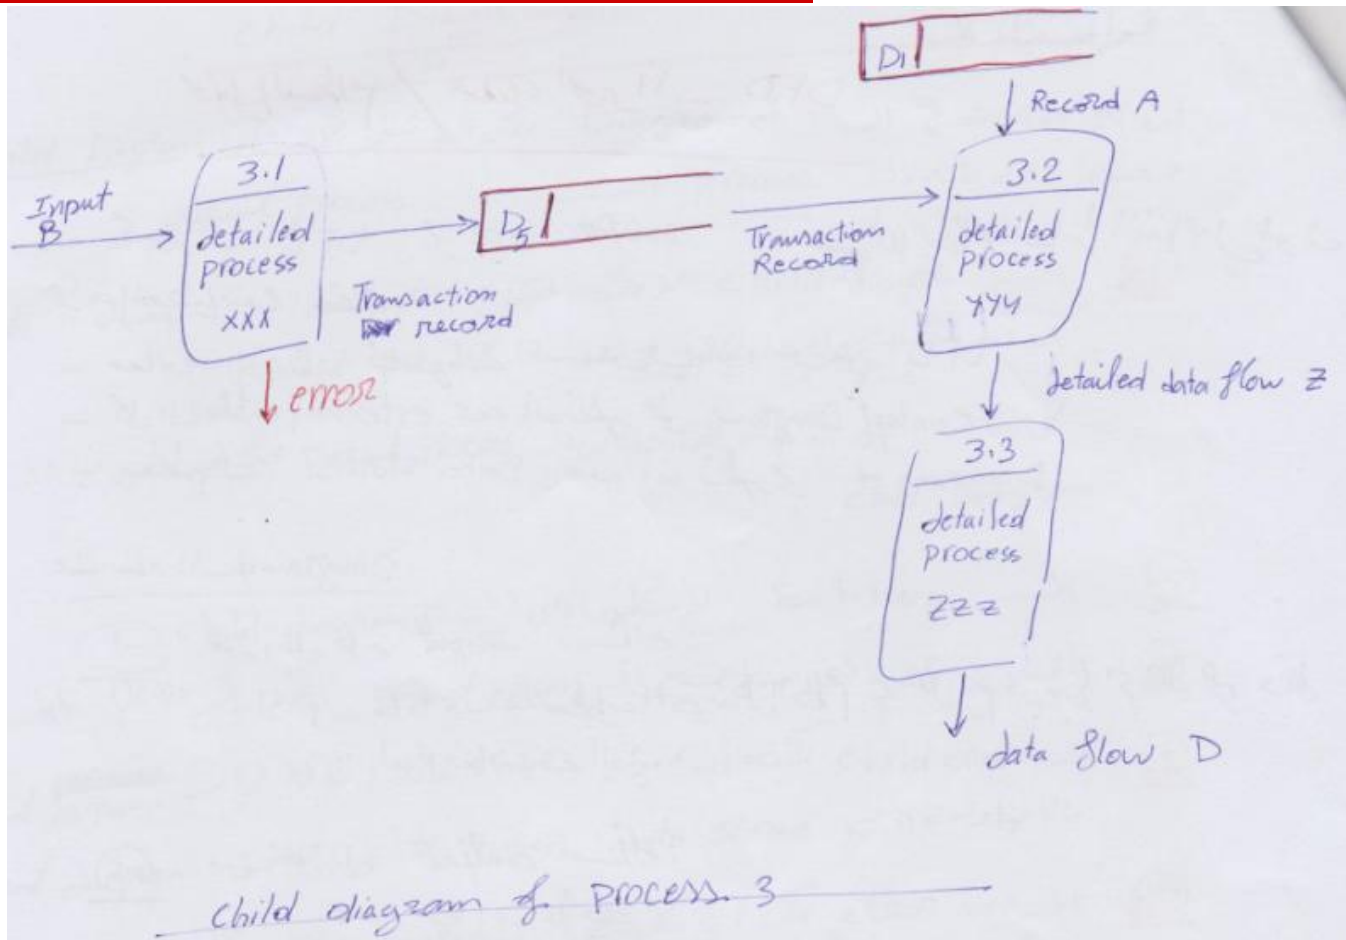 D1
Record A
Input
B
3.1
detailed
process
XXX
error
Transaction
record
D5
Transaction
Record
3.2
detailed
process
YYY
detailed data flow Z
3.3
detailed
process
ZZZ
data flow D
Child diagram of process 3